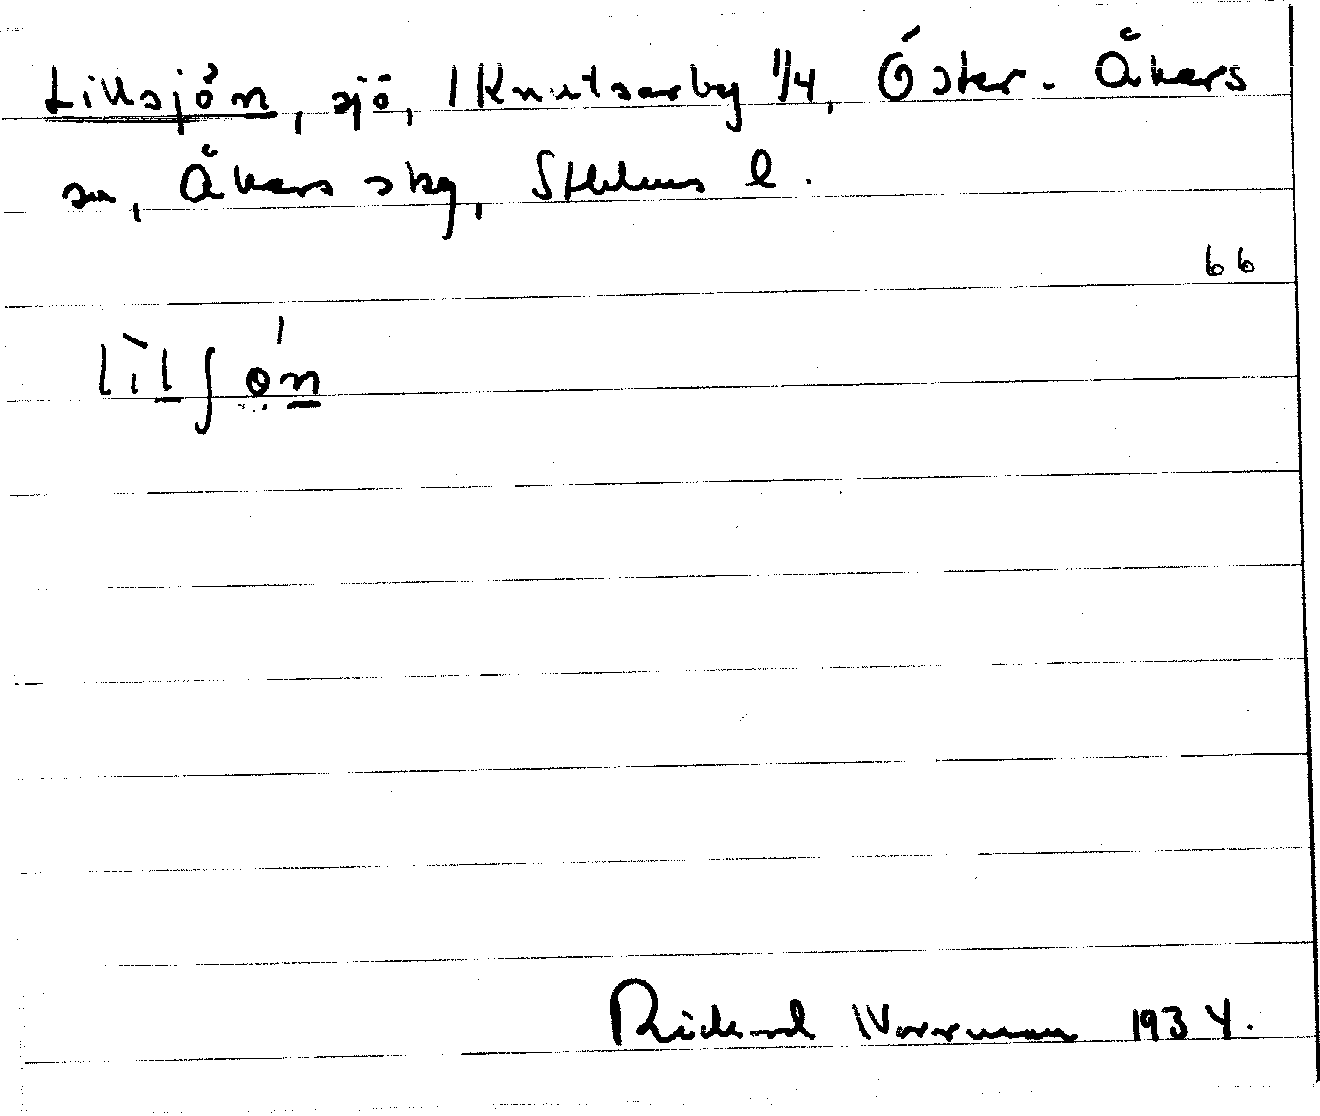 Lillsjön, sjö, 1 Knutsarby 1/4, Öster-Åkers
sn, Åkers skg, Sthlms l.
66
lìlʃón
Rickard Norrman 1934.